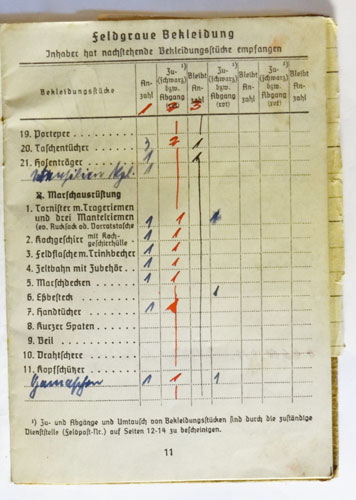 Feldgraue Bekleidung
Inhaber hat nachstehende Bekleidungsstücke empfangen
Bekleidungsstücke An-zahl Zu- (schwarz) bzw. Abgang (rot) ¹) Bleibt An-zahl Zu- (schwarz) bzw. Abgang (rot) ¹) Bleibt An-zahl Zu- (schwarz) bzw. Abgang (rot) ¹) Bleibt
1 2 3
19. Portepee
20. Taschentücher 3 2 1
21. Hosenträger 1 1
Kpl. 1
X. Marschausrüstung
1. Tornister m. Trageriemen
und drei Mantelriemen
(od. Rucksack od. Vorratstasche 1 1 1
2. Kochgeschirr mit Koch-
geschirrhülle 1 1
3. Feldflasche m. Trinkbecher 1 1
4. Zeltbahn mit Zubehör 1 1
5. Marschdecken 1 1
6. Eßbesteck 1
7. Handtücher 1 1
8. Kurzer Spaten
9. Beil
10. Drahtschere
11. Kopfschützer
Gamaschen 1 1 1
¹) Zu- und Abgänge und Umtausch von Bekleidungsstücken sind durch die zuständige
Dienststelle (Feldpost-Nr.) auf Seiten 12-14 zu bescheinigen.
11